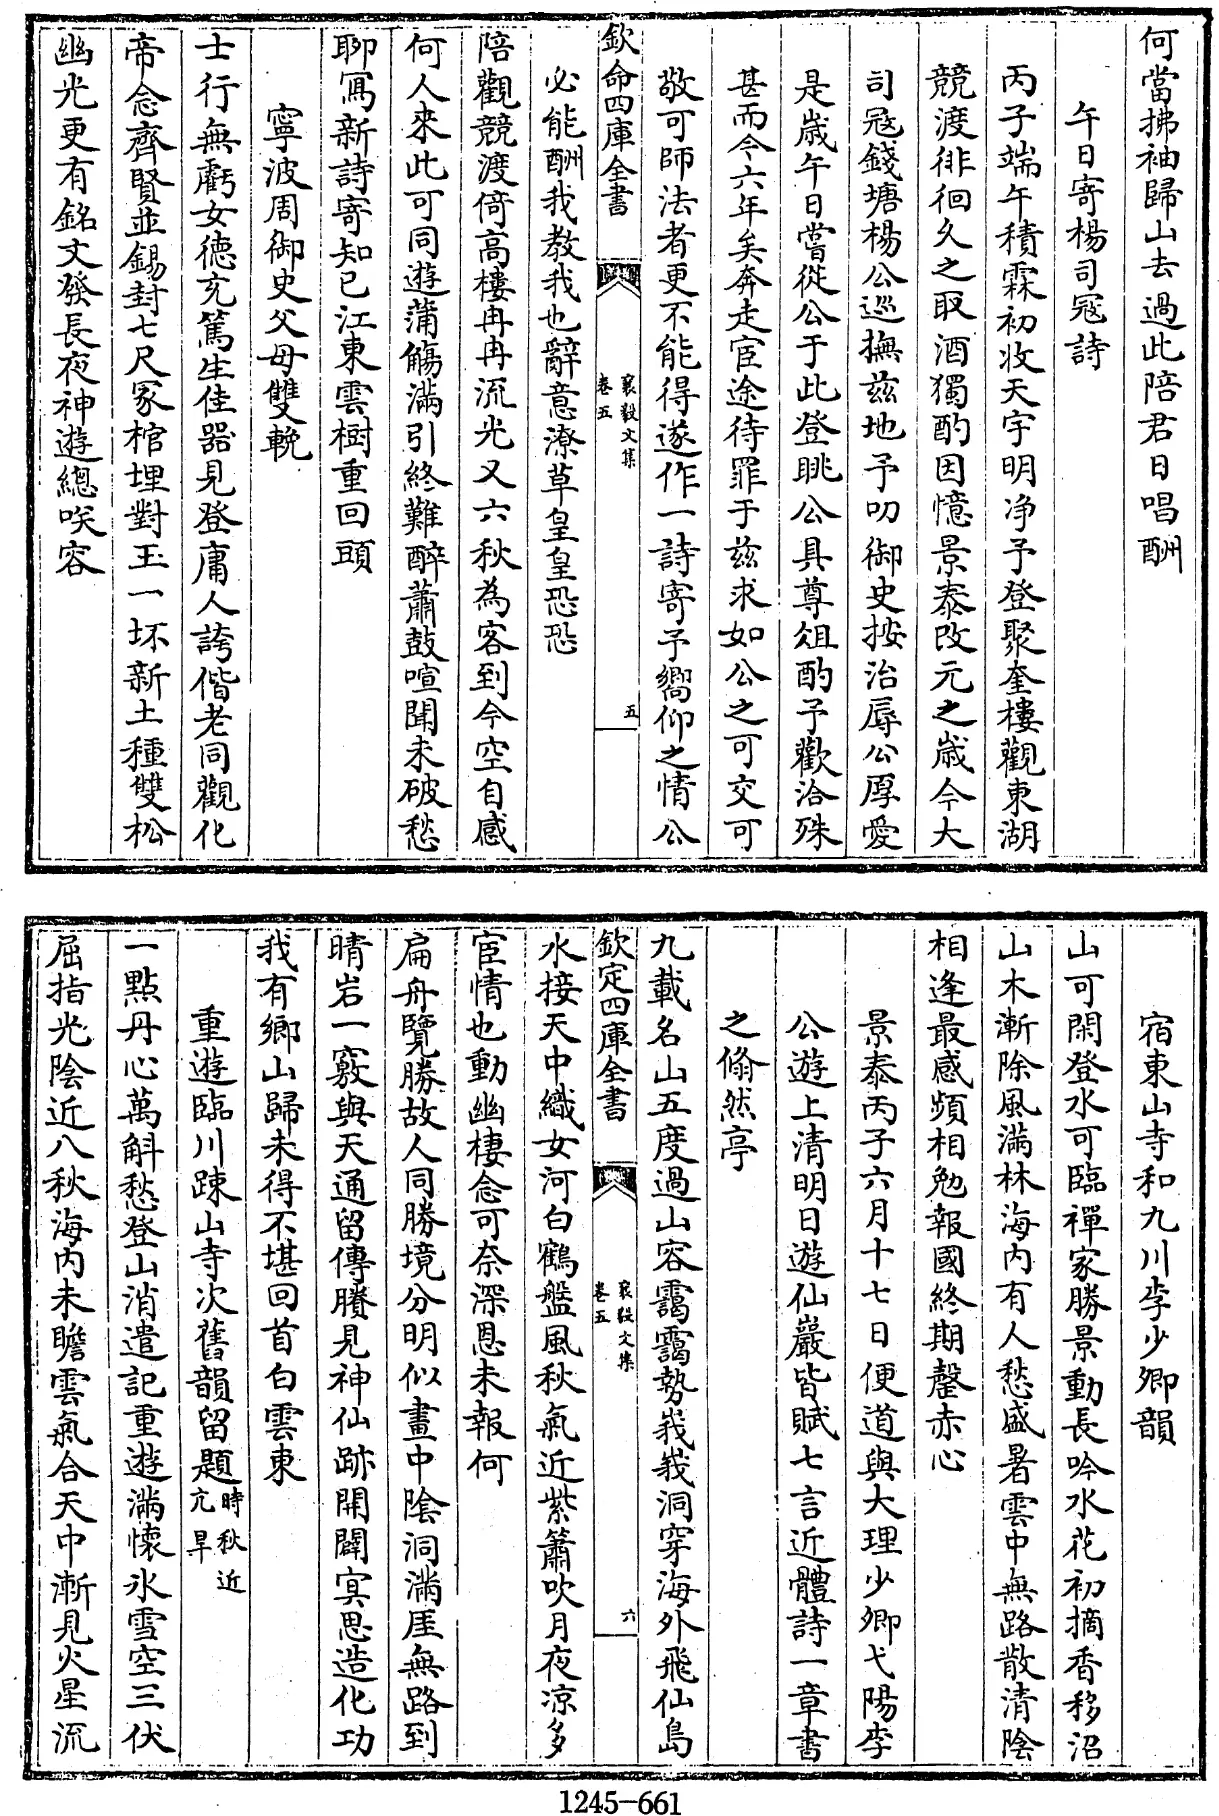 何當拂袖歸山去過此陪君日唱酬
午日寄楊司冦詩
丙子端午積霖初收天宇明净予登聚奎樓觀東湖
競渡徘徊久之取酒獨酌因憶景泰改元之歳今大
司冦錢塘楊公巡撫兹地予叨御史按治辱公厚愛
是歳午日嘗從公于此登眺公具尊俎酌予歡洽殊
甚而今六年矣奔走宦途待罪于兹求如公之可交可
敬可師法者更不能得遂作一詩寄予嚮仰之情公
欽命四庫全書
襄毅文集
卷五
五
必能酬我教我也辭意潦草皇皇恐恐
陪觀競渡倚高樓冉冉流光又六秋為客到今空自感
何人來此可同遊蒲觴滿引終難醉蕭鼓喧闐未破愁
聊寫新詩寄知己江東雲樹重回頭
寧波周御史父母雙輓
士行無虧女德充篤生佳器見登庸人誇偕老同觀化
帝念齊賢並錫封七尺冢棺埋對玉一坏新土種雙松
幽光更有銘文發長夜神遊總咲容
宿東山寺和九川李少卿韻
山可閑登水可臨禪家勝景動長吟水花初摘香移沼
山木漸除風滿林海内有人愁盛暑雲中無路散清陰
相逢最感頻相勉報國終期罄赤心
景泰丙子六月十七日便道與大理少卿弋陽李
公遊上清明日遊仙巖皆賦七言近體詩一章書
之翛然亭
九載名山五度過山容靄靄勢峩峩洞穿海外飛仙島
欽定四庫全書
襄毅文集
卷五
六
水接天中織女河白鶴盤風秋氣近紫簫吹月夜凉多
宦情也動幽棲念可奈深恩未報何
扁舟覽勝故人同勝境分明似畫中陰洞滿厓無路到
晴岩一竅與天通留傳賸見神仙跡開闢寔思造化功
我有鄉山歸未得不堪回首白雲東
重遊臨川踈山寺次舊韻留題時秋近亢旱
一點丹心萬斛愁登山消遣記重遊滿懷氷雪空三伏
屈指光陰近八秋海内未瞻雲氣合天中漸見火星流
1245-661